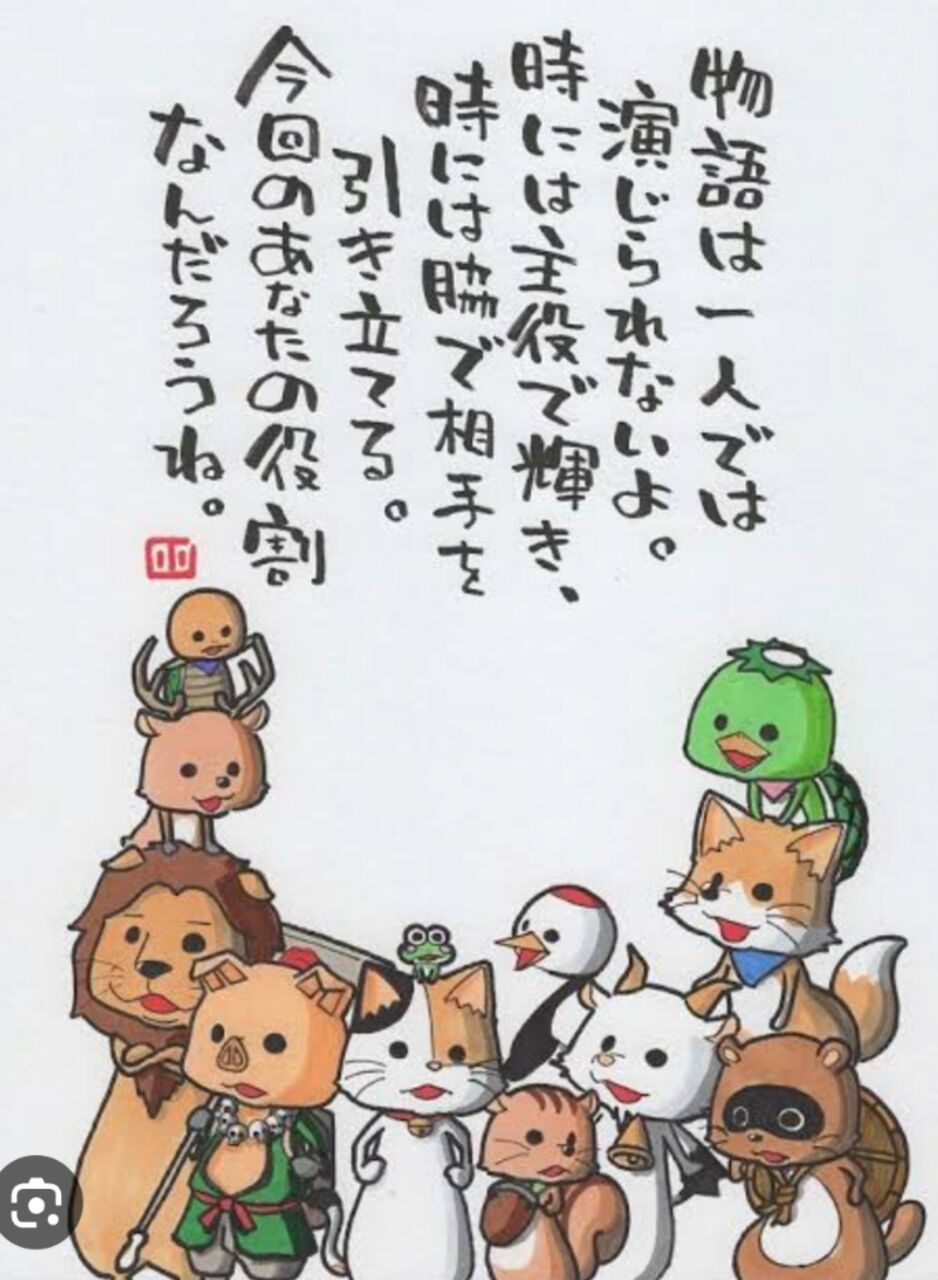 物語は一人では
演じられないよ。
時には主役で輝き、
時には脇で相手を
引き立てる。
今回のあなたの役割
なんだろうね。